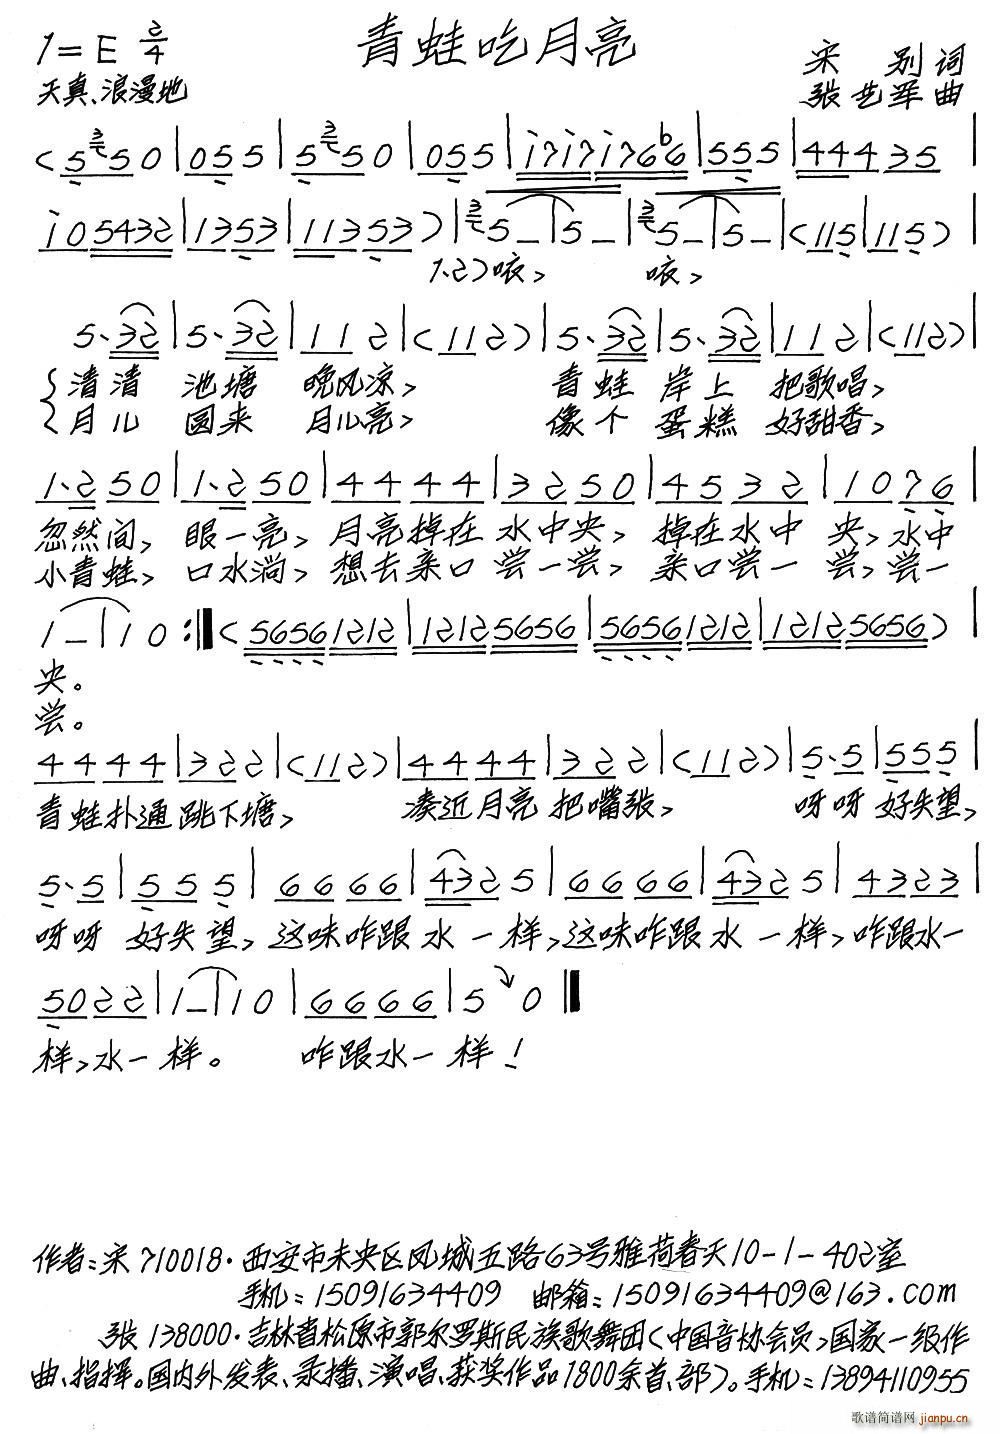 1=E 2/4
青蛙吃月亮
天真、浪漫地
宋 别 词
张艺军 曲
( 5 3 5 0 | 0 5 5 | 5 3 5 0 | 0 5 5 | i 7 i 7 i 7 6 b6 | 5 5 5 | 4 4 4 3 5 |
i 0 5 4 3 2 | 1 3 5 3 | 1 1 3 5 3 ) | 5 – | 5 – | 5 – | 5 – | ( 1 1 5 | 1 1 5 ) |
1、2)哝, 哝,
5、3 2 | 5、3 2 | 1 1 2 | ( 1 1 2 ) | 5、3 2 | 5、3 2 | 1 1 2 | ( 1 1 2 ) |
清清 池塘 晚风凉, 青蛙 岸上 把歌唱,
月儿 圆来 月儿亮, 像个 蛋糕 好甜香,
1、2 5 0 | 1、2 5 0 | 4 4 4 4 | 3 2 5 0 | 4 5 3 2 | 1 0 7 6 |
忽然间, 眼一亮, 月亮掉在 水中央, 掉在水中 央, 水中
小青蛙, 口水淌, 想去亲口 尝一尝, 亲口尝一 尝, 尝一
1 – | 1 0 :‖ ( 5 6 5 6 1 2 1 2 | 1 2 1 2 5 6 5 6 | 5 6 5 6 1 2 1 2 | 1 2 1 2 5 6 5 6 ) |
央。
尝。
4 4 4 4 | 3 2 2 | ( 1 1 2 ) | 4 4 4 4 | 3 2 2 | ( 1 1 2 ) | 5、5 | 5 5 5 |
青蛙扑通 跳下塘, 凑近月亮 把嘴张, 呀呀 好失望,
5、5 | 5 5 5 | 6 6 6 6 | 4 3 2 5 | 6 6 6 6 | 4 3 2 5 | 4 3 2 3 |
呀呀 好失望, 这味咋跟 水一样, 这味咋跟 水一样, 咋跟水一
5 0 2 2 | 1 – | 1 0 | 6 6 6 6 | 5 0 ‖
样, 水一样。 咋跟水一 样!
作者:宋 710018·西安市未央区凤城五路63号雅荷春天10-1-402室
手机:15091634409 邮箱:15091634409@163.com
张 138000·吉林省松原市郭尔罗斯民族歌舞团(中国音协会员,国家一级作
曲、指挥。国内外发表、录播、演唱、获奖作品1800余首、部)。手机:13894110955
歌谱简谱网 jianpu.cn